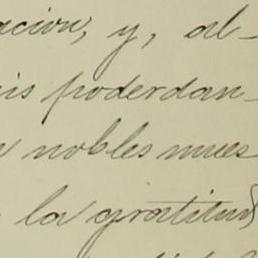 acion, y, al-
is poderdan-
nobles mues
la gratitud